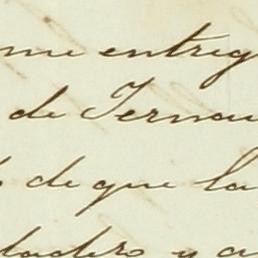 me entreg
de Fernan
de que la
dadero y a